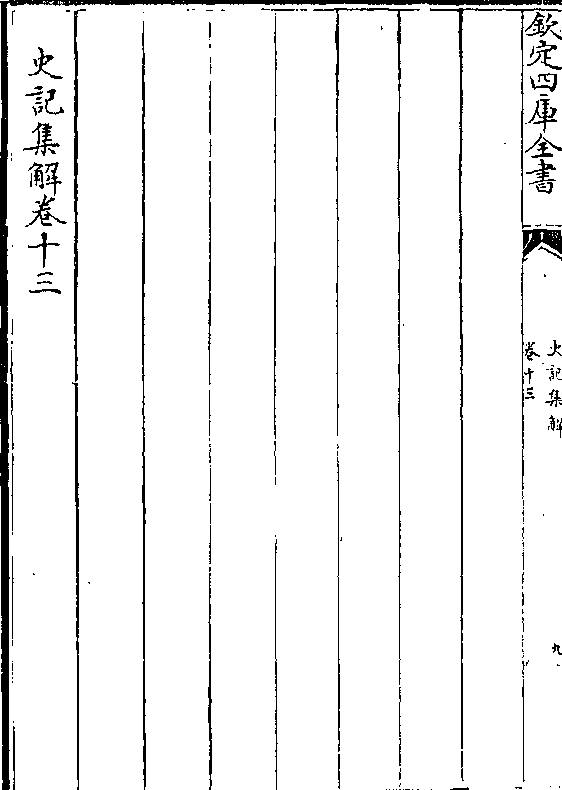 欽定四庫全書
史記集解
卷十三
九
史記集解卷十三